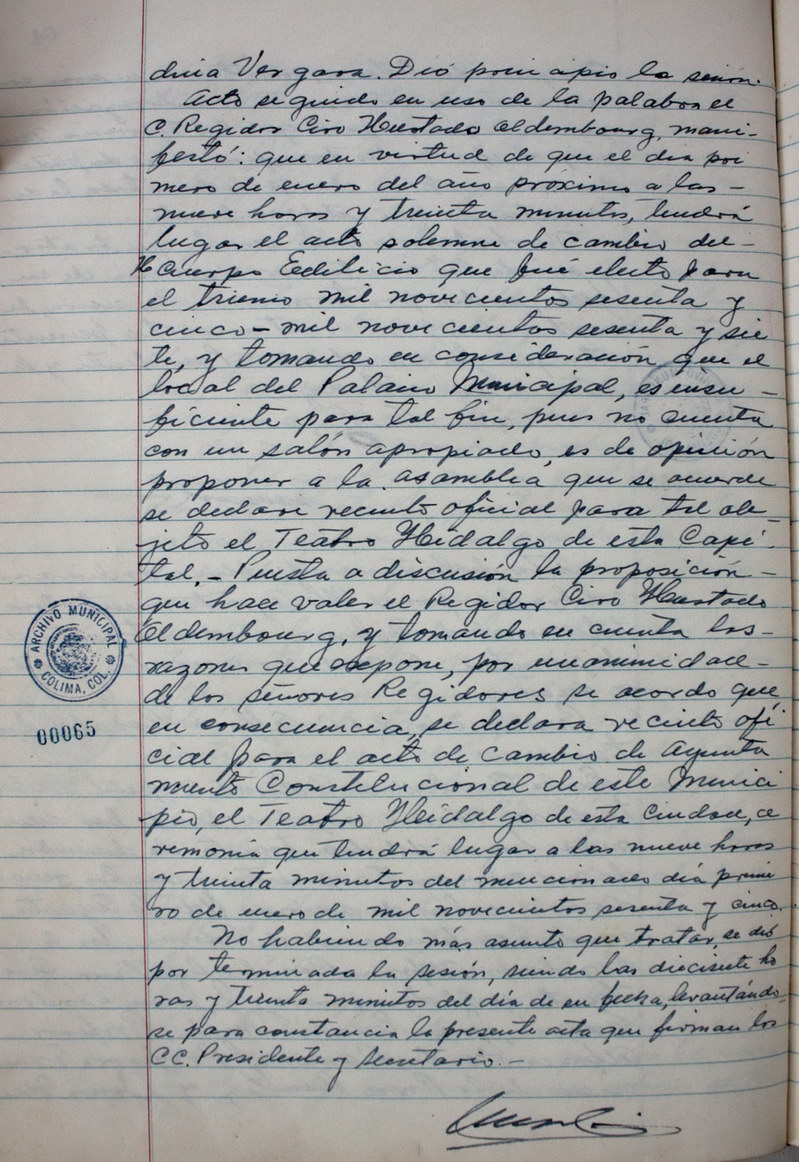 dina Vergara. Dió principio la sesión.
Acto seguido en uso de la palabra el
C. Regidor Ciro Hurtado Oldembourg, mani-
festó: que en virtud de que el día pri
mero de enero del año próximo a las -
nueve horas y treinta minutos, tendrá
lugar el acto solemne de cambio del -
H Cuerpo Edilicio que fué electo para
el trienio mil novecientos sesenta y
cinco - mil novecientos sesenta y sie
te, y tomando en consideración que el
local del Palacio Municipal, es insu -
ficiente para tal fin, pues no cuenta
con un salón apropiado, es de opinión
proponer a la asamblea que se acuerde
se declare recinto oficial para tal ob-
jeto el Teatro Hidalgo de esta Capi-
tal. - Puesta a discusión la proposición -
que hace valer el Regidor Ciro Hurtado
Oldembourg, y tomando en cuenta las -
razones que expone, por unanimidad -
de los señores Regidores se acordo que
en consecuencia, se declara recinto ofi
cial para el acto de cambio de Ayunta
miento Constitucional de este Munici
pio, el Teatro Hidalgo de esta Ciudad, ce
remonia que tendrá lugar a las nueve horas
y treinta minutos del mencionado día prime
ro de enero de mil novecientos sesenta y cinco.
No habiendo más asunto que tratar, se dió
por terminada la sesión, siendo las diecisiete ho
ras y treinta minutos del día de su fecha, levantándo-
se para constancia la presente acta que firman los
CC. Presidente y Secretario. -
ARCHIVO MUNICIPAL
COLIMA, COL.
00065